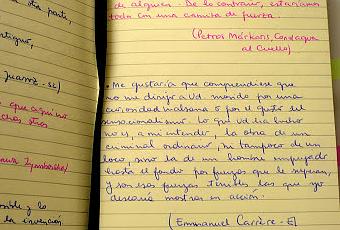 ota parte,
ntiguo,
Juarroz - sc)
que aquí no
chos otros
ensible y lo
la invención.
de alguien. De lo contrario, estaríamos
todo con una camisa de fuerza.
(Petros Márkaris, Con el agua
al cuello)
• Me gustaría que comprendiese que
no me dirijo a Ud. movido por una
curiosidad malsana o por el gusto del
sensacionalismo. Lo que Ud ha hecho
no es, a mi entender, la obra de un
criminal ordinario, ni tampoco de un
loco, sino la de un hombre empujado
hasta el fondo por fuerzas que le superan,
y son esas fuerzas terribles las que yo
desearía mostrar en acción.
(Emmanuel Carrère - El